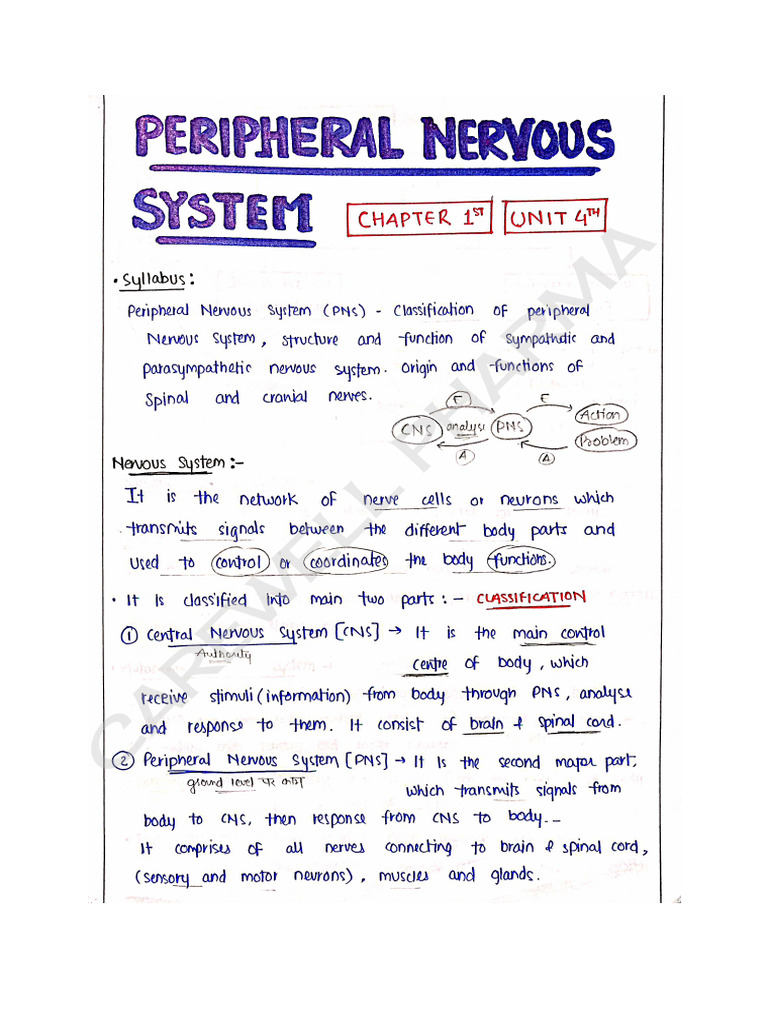 PERIPHERAL NERVOUS
SYSTEM CHAPTER 1ST UNIT 4TH
• Syllabus:
Peripheral Nervous System (PNS) - Classification of peripheral
Nervous System, structure and function of sympathetic and
parasympathetic nervous system. Origin and functions of
Spinal and cranial nerves.
E E
CNS analyse PNS Action
Problem
A A
Nervous System:-
It is the network of nerve cells or neurons which
transmits signals between the different body parts and
used to control or coordinates the body functions.
• It is classified into main two parts:- CLASSIFICATION
① Central Nervous System [CNS] → It is the main control
Authority
centre of body, which
receive stimuli (information) from body through PNS, analyse
and response to them. It consist of brain & spinal cord.
② Peripheral Nervous System [PNS] → It is the second major part,
ground level पर काम
which transmits signals from
body to CNS, then response from CNS to body.--
It comprises of all nerves connecting to brain & spinal cord,
(sensory and motor neurons), muscles and glands.
CAREWELL PHARMA